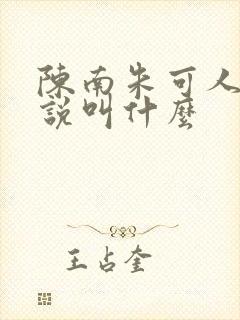 陳南朱可人
說叫什麼
王占奎